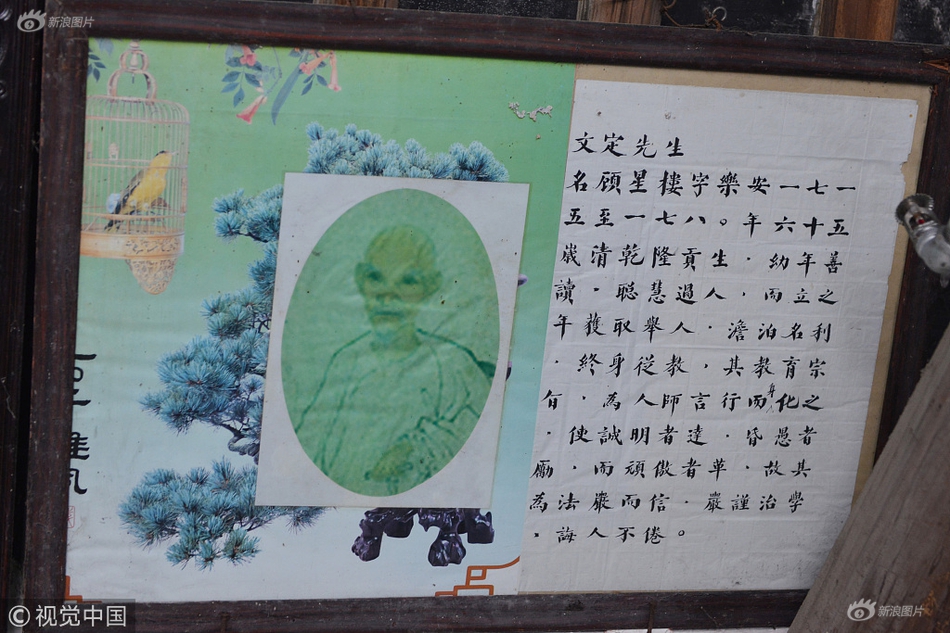 新浪图片
文定先生
名顾星樓字樂安一七一
五至一七八。年六十五
歲清乾隆貢生．幼年善
讀．聪慧過人，而立之
年獲取舉人．澹泊名利
．終身從教，其教育宗
旨．為人師言行而身化之
．使誠明者達．昏愚者
勵．而頑傲者革．故其
為法嚴而信．嚴謹治學
．誨人不倦。
© 视觉中国
新浪图片